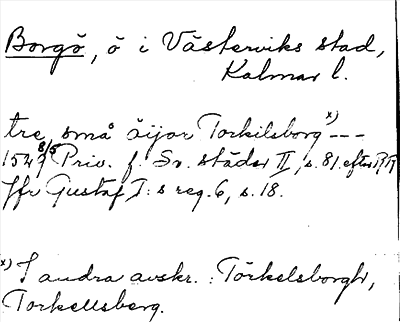 Borgö, ö i Västerviks stad,
Kalmar l.
tre små öijor Torkilsborg x) ---
154 8/5 Priv. f. Sv. städer II, s. 81. efter
Jfr Gustaf I:s reg. 6, s. 18.
x) I andra avskr. : Törkelsborgh,
Torkellsberg.